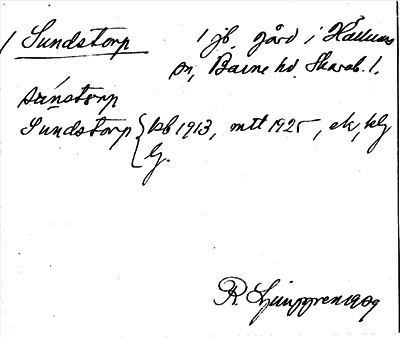 1 Sundstorp 1 jb. gård i Källums
sn, Barne hd. Skarab. l.
súnstorp
Sundstorp { kb 1913, mtl 1925, ek, hlg
G.
R. Ljunggren 1909